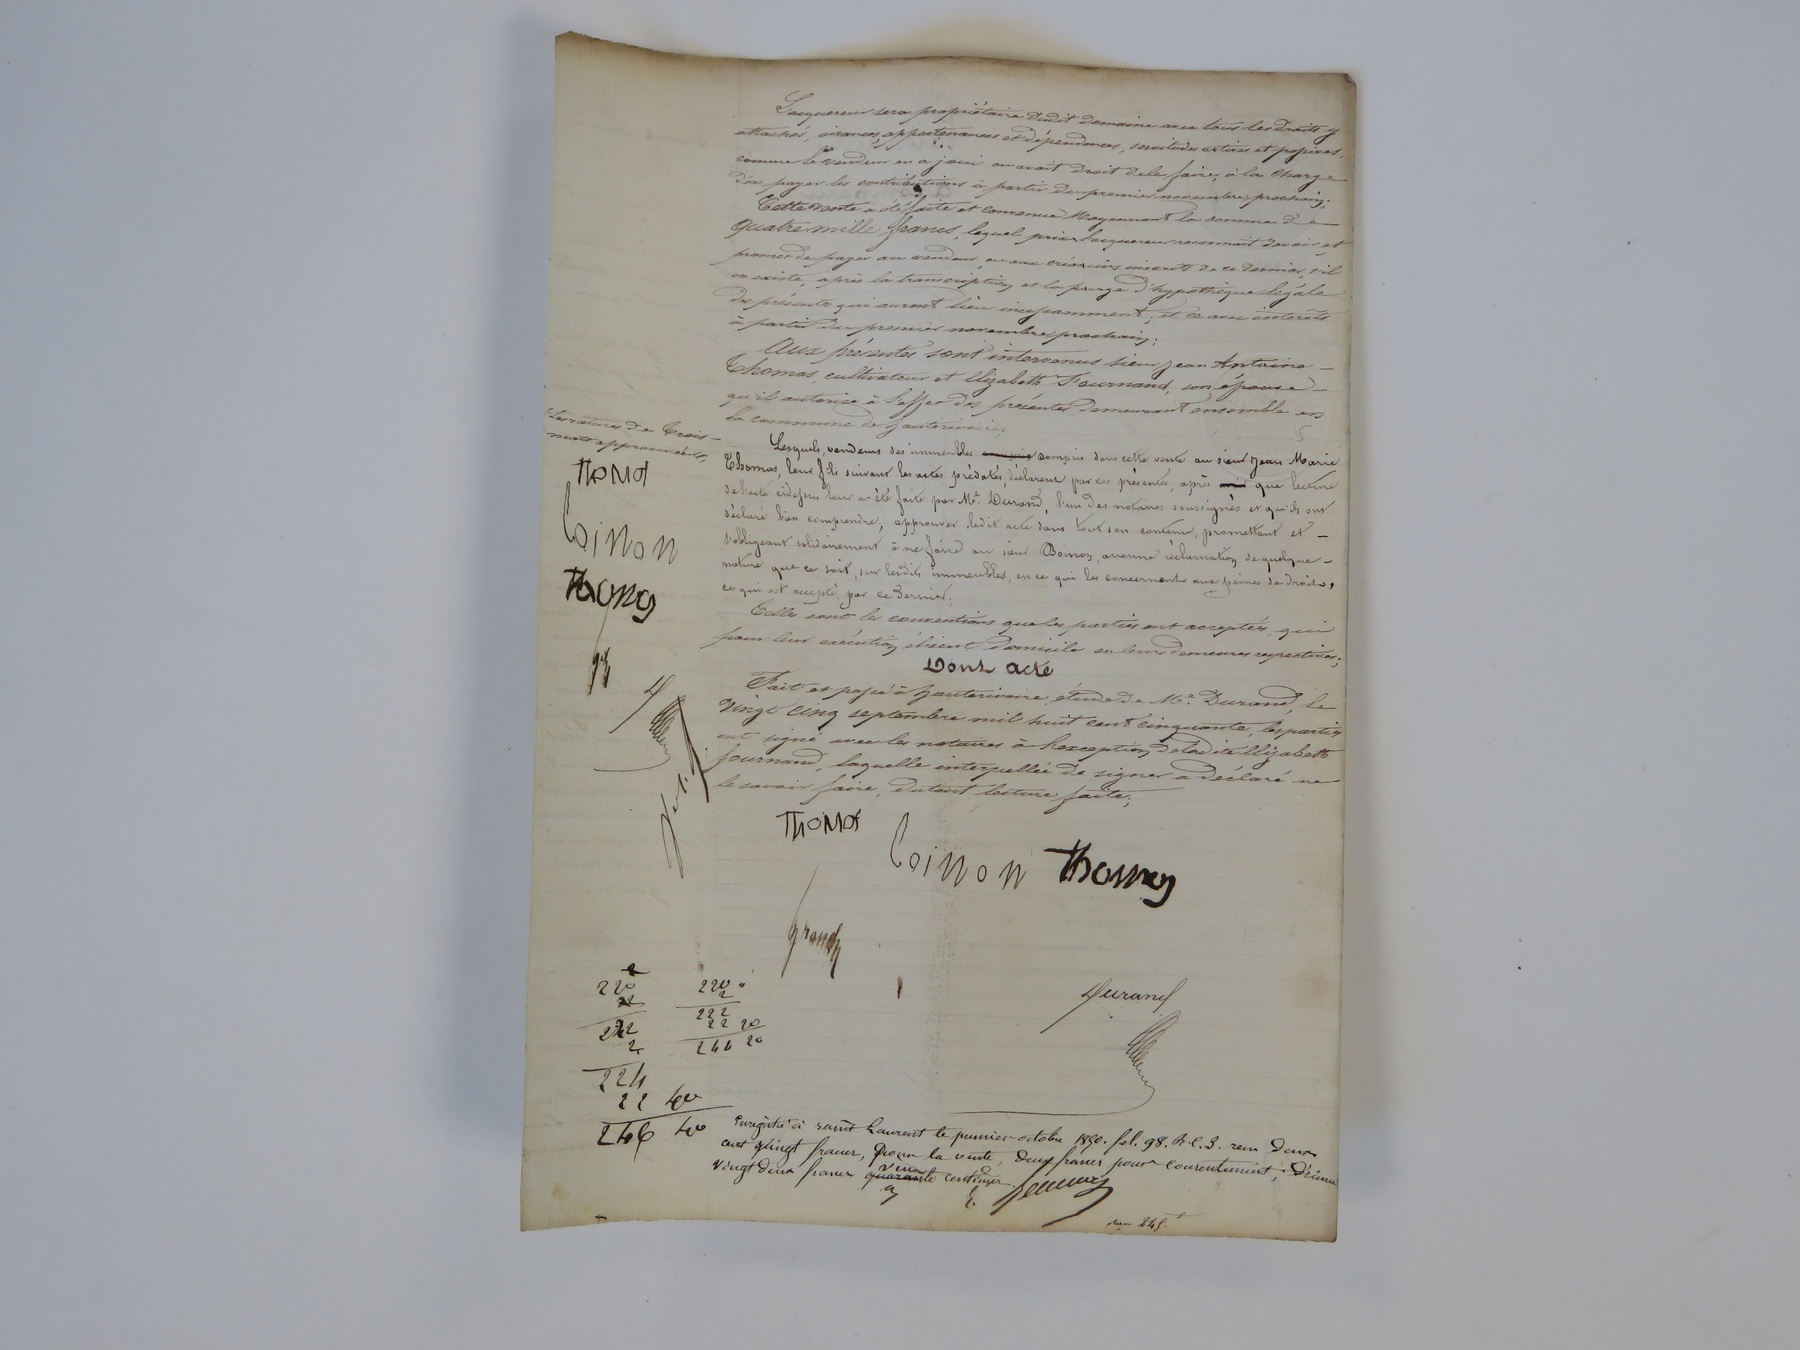 L'acquereur sera propriétaire dudit domaine avec tous les droits y
attachés, aisances, appartenances et dépendances, servitudes actives et passives,
comme le vendeur en a joui ou avait droit de le faire, à la charge
d'en payer les contributions à partir du premier novembre prochain;
Cette vente a été faite et convenue Moyennant la somme de
Quatre mille francs, lequel prix l'acquereur reconnait devoir et
promet de payer au vendeur, ou aux créanciers inscrits de ce dernier, s'il
en existe, après la transcription et la purge d'hypothèque légale
des présentes qui auront lieu incessamment, et ce avec intérêts
à partir du premier novembre prochain;
Aux présentes sont intervenus sieur Jean Antoine
Thomas, cultivateur et Elizabeth Fournand, son épouse
qu'il autorise à l'effet des présentes demeurant ensemble en
la commune de hauterivoire,
Les ratures de trois
mots approuvées,
Thomas
Coinon
Thomas
Lesquels, vendeurs des immeubles compris dans cette vente au sieur Jean Marie
Thomas, leur fils suivant les actes prédatés, déclarent par ces présentes, après que lecture
de l'acte cidessus leur a été faite par Me. Durand, l'un des notaires soussignés et qu'ils ont
déclaré bien comprendre, approuver ledit acte dans tout son contenu, promettant et
s'obligeant solidairement à ne faire au sieur Coinon aucune réclamation de quelque
nature que ce soit, sur lesdits immeubles, en ce qui les concernent aux peines de droit,
ce qui est accepté par ce dernier.
Telles sont les conventions que les parties ont acceptées, qui
pour leur exécution élisent domicile en leurs demeures respectives;
Dont acte
Fait et passé à hauterivoire, étude de Me. Durand, le
vingt cinq septembre mil huit cent cinquante, les parties
ont signé avec les notaires à l'exception de ladite Elizabeth
fournand, laquelle interpellée de signer a déclaré ne
le savoir faire, dutout lecture faite;
Thomas
Coinon Thomas
Durand
220
222
2
224
22 40
246 40
220 "
2
222
22 20
244 20
Enregistré à saint Laurent le premier octobre 1850. fol. 98. R. C. 3. reçu deux
cent vingt francs, pour la vente, deux francs pour consentement; décime
vingt deux francs vingt centimes.